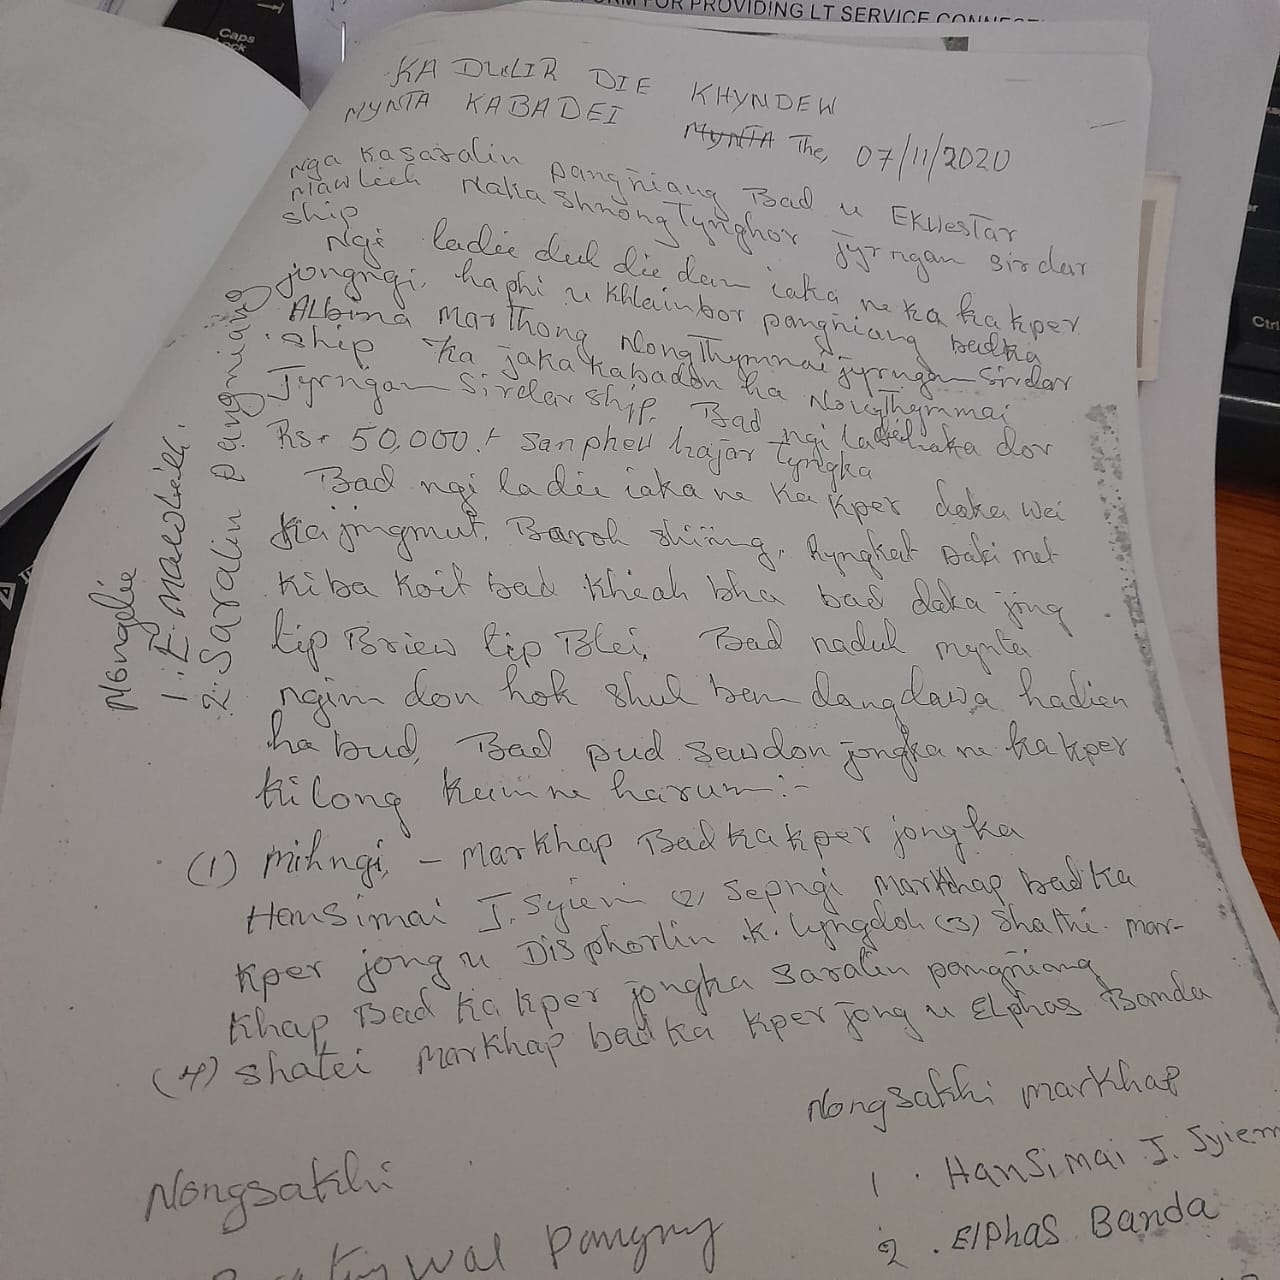 FORM FOR PROVIDING LT SERVICE
Caps
Lock
Ctrl
KA DULIR DIE KHYNDEW
MYNTA KABADEI MYNTA The, 07/11/2020
Nga Kasaralin pangñiang Bad u EKWesTar
Mawlieh Naka Shnong Tynghor jyrngam sirdar
ship
Ngi ladie dul die dam iaka ne ka kakper
jongngi, haphi u Khlainbor pangñiang badka
Albina Marthong NongThymmai jyrngam Sirdar
ship Ka jaka kabadon ha NongThymmai
Jyrngam Sirdar ship. Bad ngi iaka dor
Rs. 50,000/- sanphew hajar tyngka
Bad ngi ladie iaka ne Ka Kper daka wei
Ka jingmut. Baroh shiïing, Ryngkat baki met
Kiba Koit bad Khiah bha bad daka jing
tip Briew tip Blei, Bad naduh mynta
ngim don hok shuh ban dang dawa hadien
habud, Bad pud sawdon jongka ne kakper
kilong kumne harum:-
(1) Mihngi, - Markhap Bad kakper jongka
Hansimai J. Syiem (2) Sepngi Markhap badka
Kper jong u Disphorlin .K. Lyngdoh (3) Shathi. mar-
khap Bad Ka kper jongka Saralin pangñiang
(4) Shatei Markhap bad ka Kper jong u Elphas Banda
Nongdie
1. E. Mawlieh.
2. Saralin pangñiang
Nongsakhi markhap
1. Hansimai J. Syiem
2. Elphas Banda
Nongsakhi